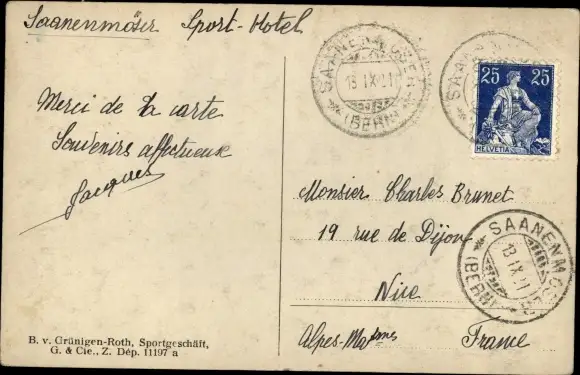 Saanenmöser Sport-Hotel
Merci de ta carte
Souvenirs affectueux
Jacques
B. v. Grünigen-Roth, Sportgeschäft,
G. & Cie., Z. Dép. 11197 a
SAANENMÖSER
13 IX 21
(BERN)
SAANEN
25 25
HELVETIA
Monsieur Charles Brunet
19 rue de Dijon
Nice
Alpes-Mames France
SAANENMÖSER
13 IX 21
(BERN)